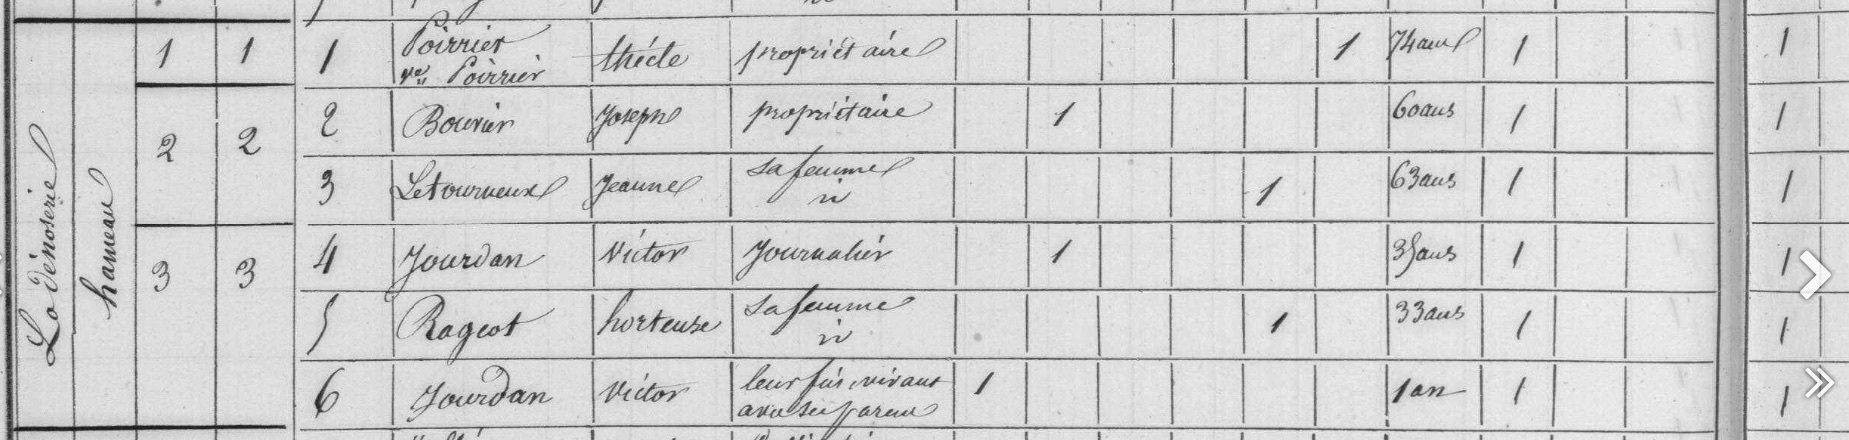 La dénoserie
hameau
1 1 1 Poirrier thécle propriétaire 1 74 ans 1 1
ve Poirrier
2 2 2 Bouvier Joseph propriétaire 1 60 ans 1 1
3 Letourneux Jeanne sa femme 1 63 ans 1 1
id
3 3 4 Jourdan Victor Journalier 1 35 ans 1 1
5 Rageot hortense sa femme 1 33 ans 1 1
id
6 Jourdan Victor leur fils vivant 1 1 an 1 1
avec ses parens